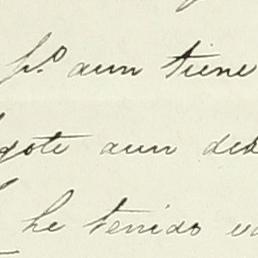 p.º aun tiene
gote aun des
he tenido